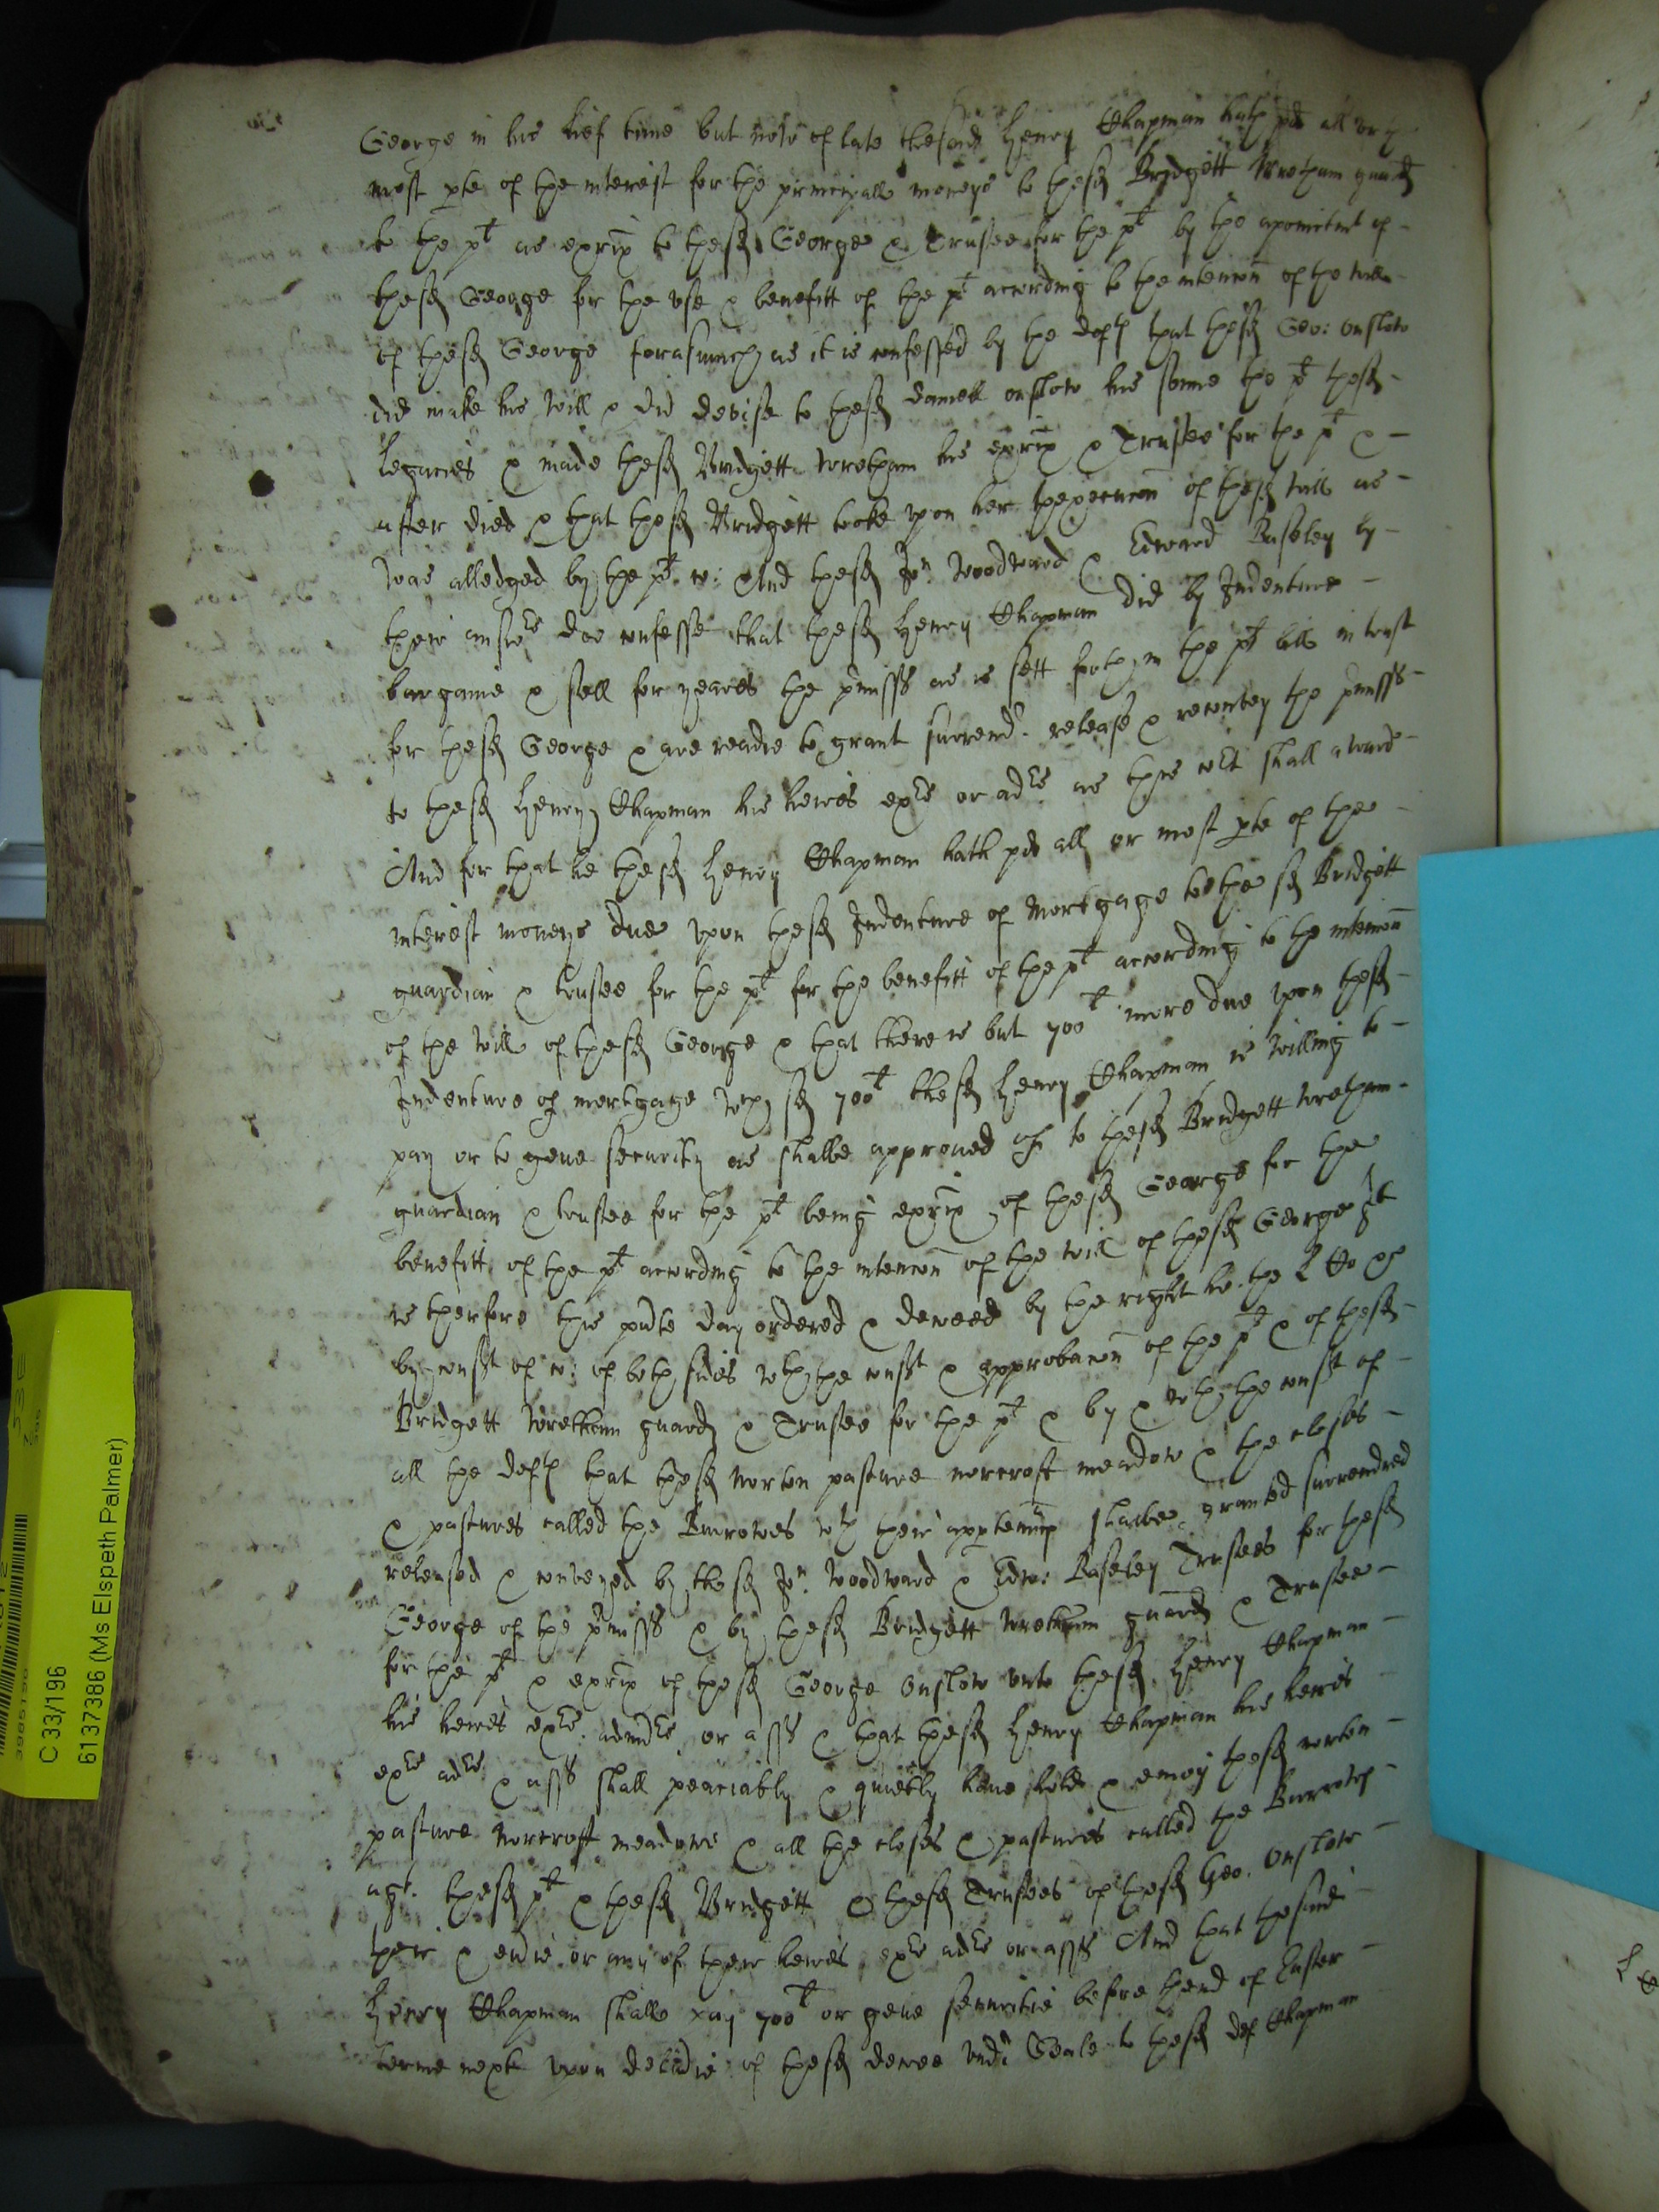 George in his lief time but nowe of late thesaid Henry Chapman hath pd all or ye
most pte of the interest for the principall moneys to thesd Bridgett Wretham guardn
to the plt as exrix to thesd George & Trustee for the plt by the apointmt of
thesd George for the vse & benefitt of the plt according to the intencon of the will
of thesd George forasmuch as it is confessed by the defts that thesd Geo: Onslow
did make his will & did devise to thesd Daniell Onslow his sonne the plt thesd
Legacies & made thesd Bridgett Wretham his exrix & Trustee for the plt &
after died & that thesd Bridgett tooke vpon her thexecucon of thesd will as
was alledged by the plts co: And thesd Jon Woodward & Edward Baseley by
their answrs doe confesse that thesd Henry Chapman did by Indenture
bargaine & sell for yeares the pmisss as is sett forth in the plts bill in trust
for thesd George & are readie to grant surrendr release & reconvey the pmisss
to thesd Henry Chapman his heires exrs or adrs as this cort shall award
And for that he thesd Henry Chapman hath pd all or most pte of the
interest moneys due vpon thesd Indenture of Mortgage to the sd Bridgett
guardian & trustee for the plt for the benefitt of the plt according to the intencon
of the will of thesd George & that there is but 700l more due vpon thesd
Indenture of mortgage wch sd 700l thesd Henry Chapman is willing to
pay or to geue security as shalbe approued of to thesd Bridgett Wretham
guardian & trustee for the plt being exrix of thesd George for the
benefitt of the plt according to the intencon of the will of thesd George It
is therfore this pnte day ordered & decreed by the right ho: the L Co
by consent of co: of both sides wth the consent & approbacon of the plt & of thesd
Bridgett Wretham guardn & Trustee for the plt & by & wth the consent of
all the defts that thesd Norton pasture Norcroft meadow & the closes
& pastures called the Burrowes wth their appurtennces shalbe granted surrendred
released & conveyed by the sd Jon Woodward & Edw: Baseley Trustees for thesd
George of the pmisss & by thesd Bridgett Wretham guardn & Trustee
for the plt & exrix of thesd George Onslow vnto thesd Henry Chapman
his heires exrs admrs or asss & that thesd Henry Chapman his heires
exrs adrs & asss shall peaciably & quietly haue hold & enioy thesd Norton
pasture Norcroft meadowe & all the closes & pastures called the Burrowes
agt thesd plt & thesd Bridgett & thesd Trustees of thesd Geo. Onslow
their & euerie or any of their heires exrs adrs or asss And that thesaid
Henry Chapman shall pay 700l or geue securitie before thend of Easter
terme next vpon deliuie of thesd decree vndr Seale to thesd def Chapman
C 33/196
6137386 (Ms Elspeth Palmer)